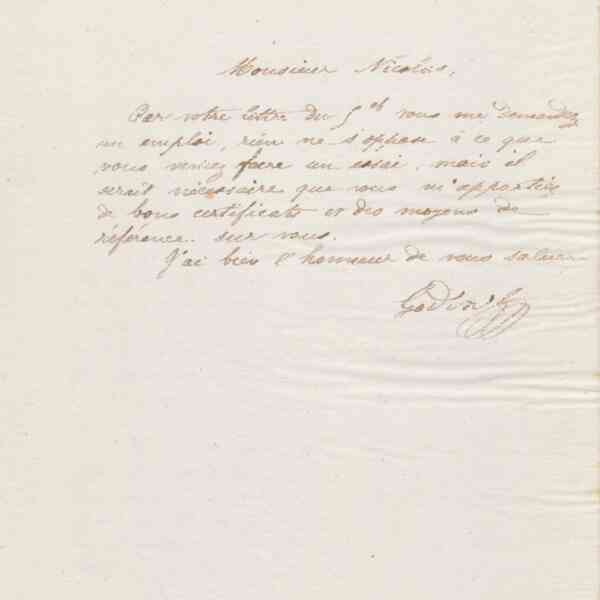 Monsieur Nicolas,
Par votre lettre du 5 ct vous me demandez
un emploi, rien ne s'oppose à ce que
vous veniez faire un essai, mais il
serait nécessaire que vous m'apportiez
de bons certificats et des moyens de
référence sur vous.
J'ai bien l'honneur de vous saluer
Godin